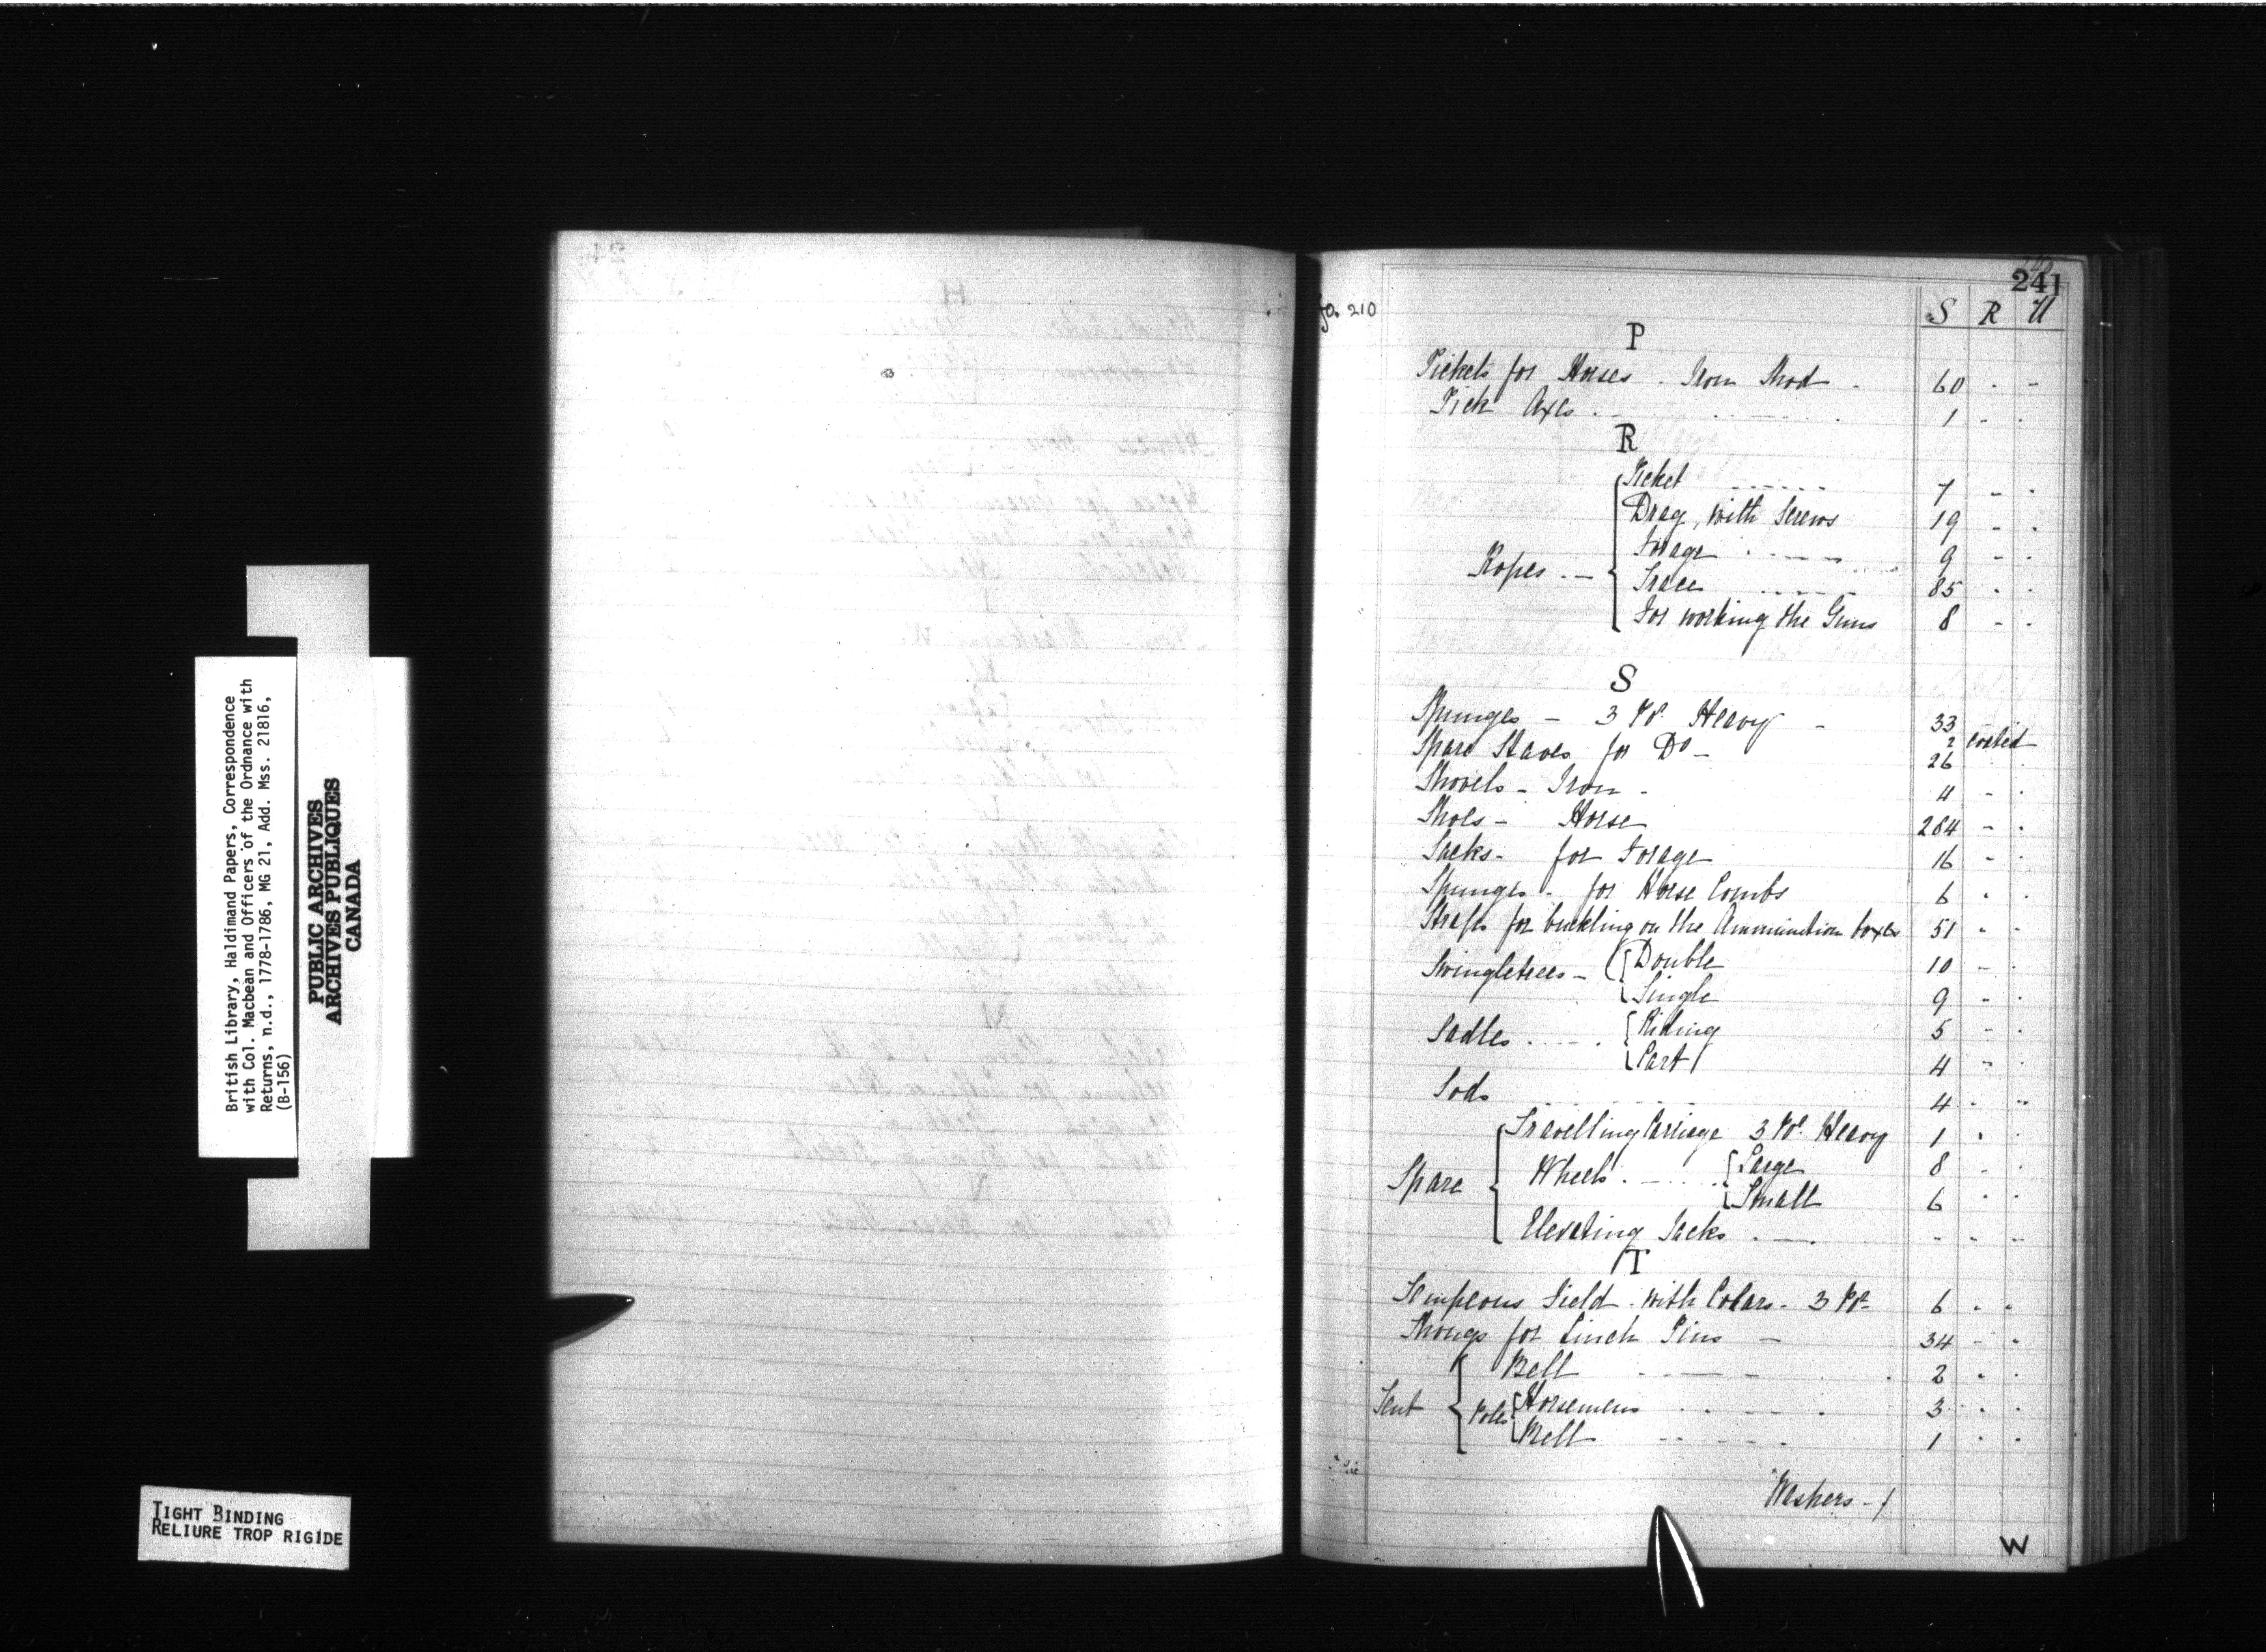 British Library, Haldimand Papers, Correspondence
with Col. Macbean and Officers of the Ordnance with
Returns, n.d., 1778-1786, MG 21, Add. Mss. 21816,
(B-156)
PUBLIC ARCHIVES
ARCHIVES PUBLIQUES
CANADA
TIGHT BINDING
RELIURE TROP RIGIDE
241
fo. 210
S R U
P
Pickets for Horses - Iron Shod - 60 - -
Pick Axes - 1 - -
R
Ropes - Picket 7 - -
Drag, with Screws 19 - -
Forage 9 - -
Trace 85 - -
For working the Guns 8 - -
S
Spunges - 3 Pdr. Heavy - 33
2
Spare Staves for Do - 26
Shovels - Iron - 4 - -
Shoes - Horse 284 - -
Sacks - for Forage 16 - -
Spunges - for Horse Combs 6 - -
Straps for buckling on the Ammunition boxes 51 - -
Swingletrees - Double 10 - -
Single 9 - -
Sadles Riding 5 - -
Cart 4 - -
Sods 4 - -
Spare Travelling Carriage 3 Pdr. Heavy 1 - -
Wheels - Large 8 - -
Small 6 - -
Elevating Jacks - - - -
T
Tempeons Field - with Colars - 3 Pdr 6 - -
Thongs for Linch Pins - 34 - -
Tent Bell 2 - -
Poles Horsemens 3 - -
Bell 1 - -
Washers -
W